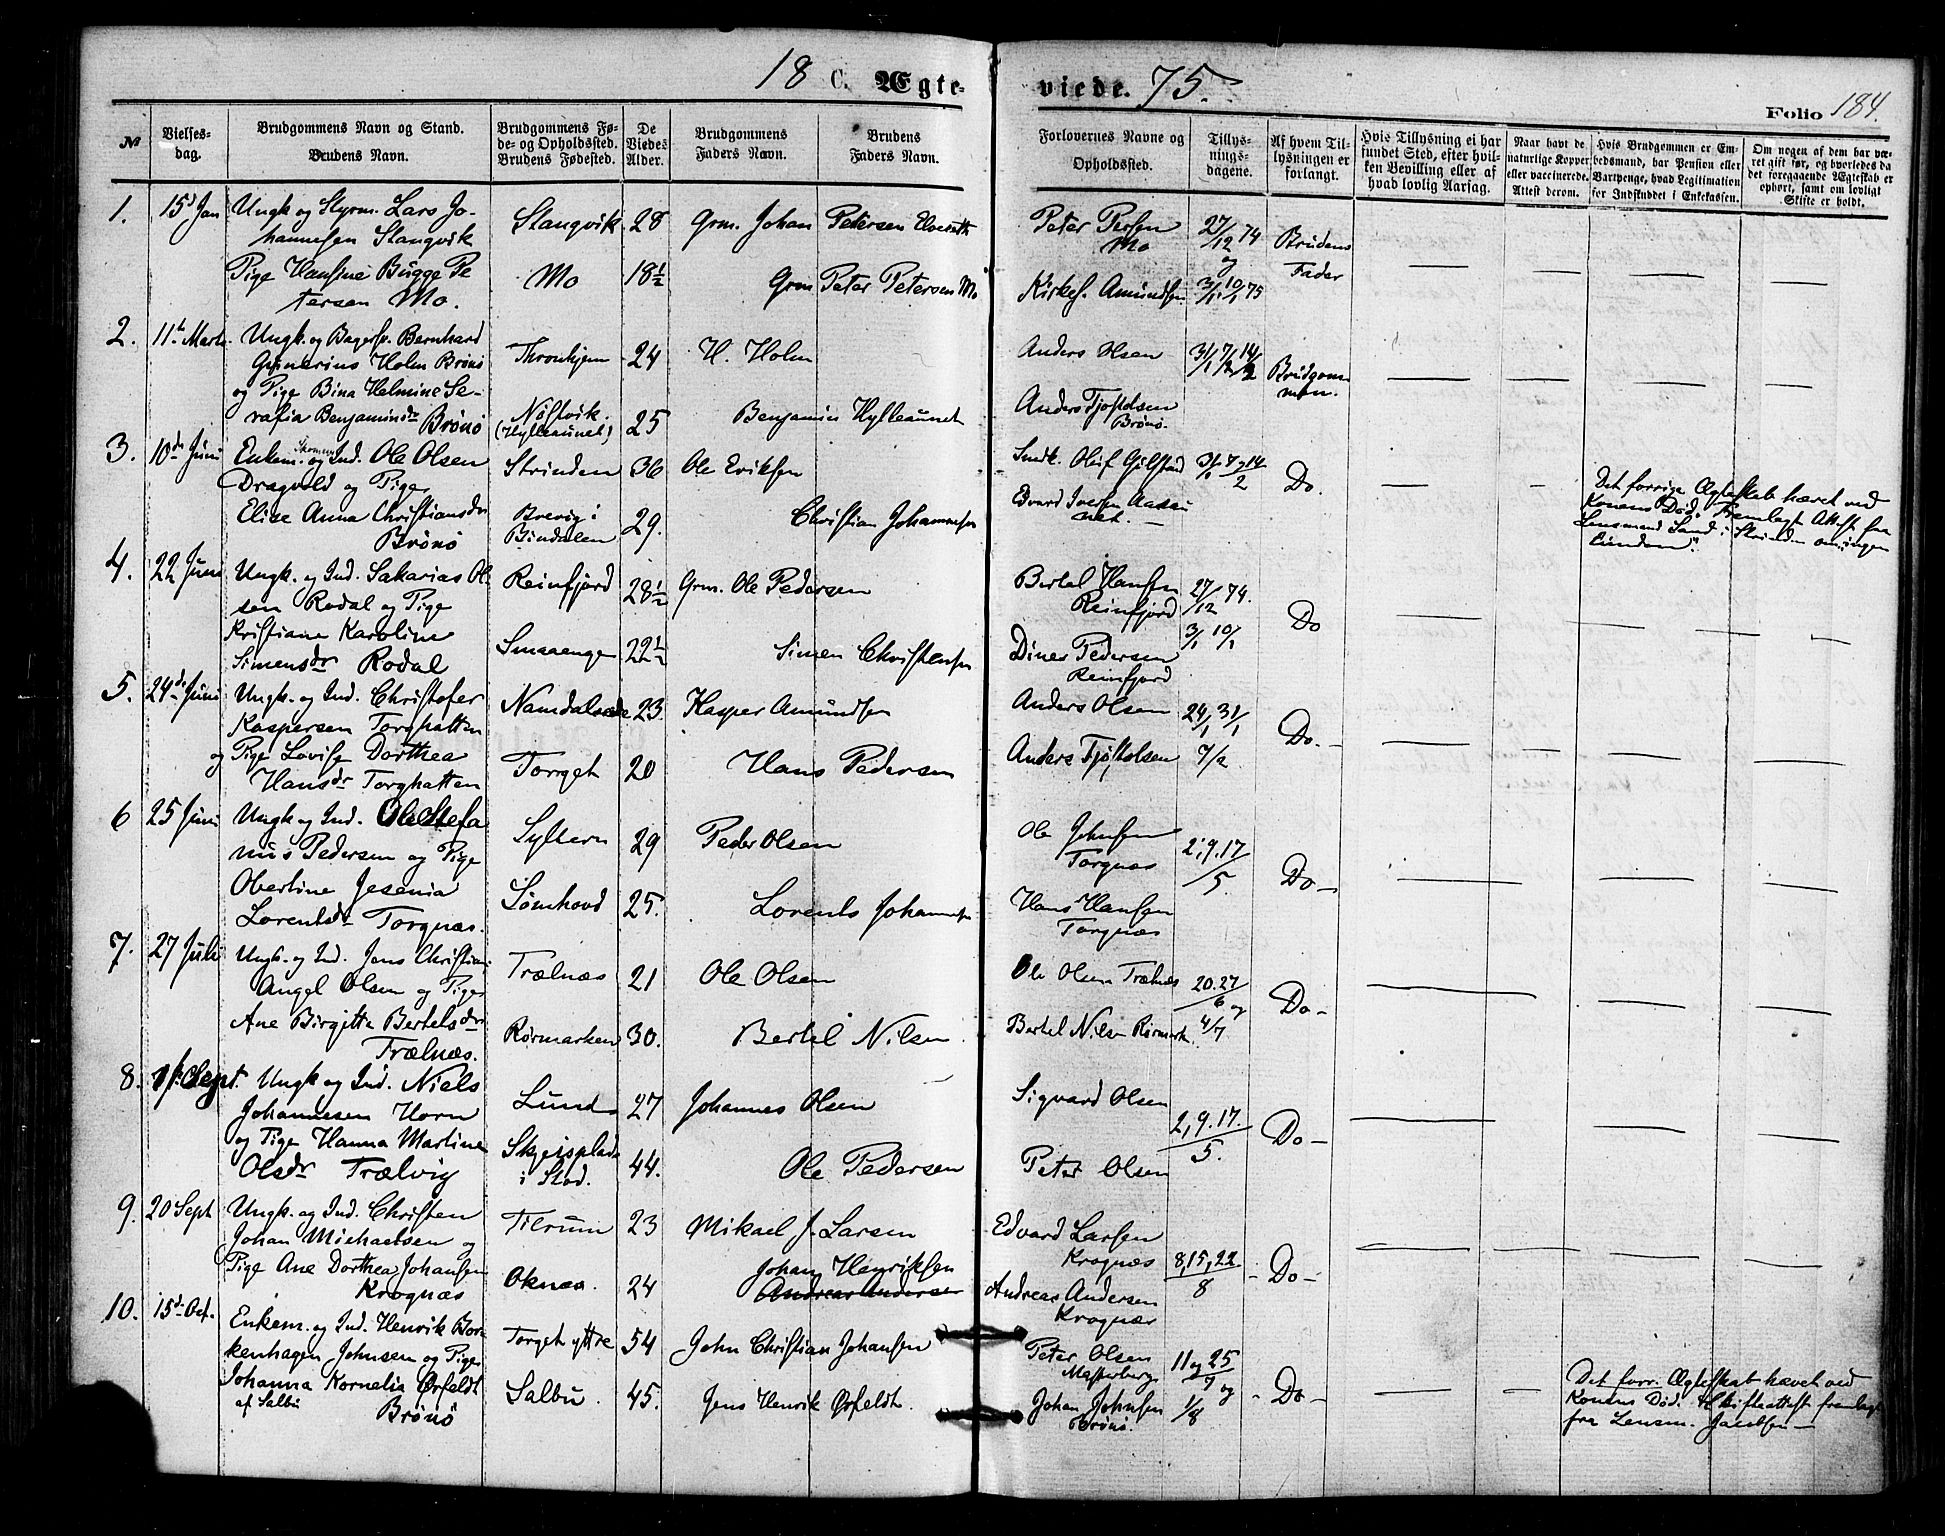 18 C. Ægte-
viede. 75.
Folio 184.
№
Vielses-
dag.
Brudgommens Navn og Stand.
Brudens Navn.
Brudgommens Fø-
de- og Opholdssted.
Brudens Fødested.
De
Viedes
Alder.
Brudgommens
Faders Navn.
Brudens
Faders Navn.
Forlovernes Navne og
Opholdssted.
Tillys-
nings-
dagene.
Af hvem Til-
lysningen er
forlangt.
Hvis Tillysning ei har
fundet Sted, efter hvil-
ken Bevilling eller af
hvad lovlig Aarsag.
Naar havt de
naturlige Kopper
eller vaccinerede.
Attest derom.
Hvis Brudgommen er Em-
bedsmand, har Pension eller
Vartpenge, hvad Legitimation
for Indskuddet i Enkekassen.
Om nogen af dem har væ-
ret gift før, og hvorledes da
det foregaaende Ægteskab er
ophørt, samt om lovligt
Skifte er holdt.
1. 15d Jan Ungk og Styrm. Lars Jo-
hannesen Stangvik
Stangvik 28 Grm. Johan Petersen
Pige Hansine Bugge Pe
tersen Mo.
Mo 18½ Grm Peter Petersen Mo
Peter Persen
Mo
27/12 74
og
Brudens
Fader
Kirkes. Amundsen 3/1 10/1 75
2. 11te Marts Ungk. og Bagersv. Bernhard
Gunerius Holm Brönö
og Pige Bina Helmine Se-
rafia Benjaminsdr Brönö
Thronhjem 24 H. Holm
Nöstvik
(Hylleaunet) 25 Benjamin Hylleaunet
Anders Olsen 31/1 7/2 14/2
Brudgom-
men.
Anders Tjostolsen
Brönö.
3. 10de Juni Enkem. og Ind. Ole Olsen
Dragvold og Pige
Elise Anna Christiansdr
Brönö
Strinden 36 Ole Eriksen
Brevig i
Bindalen 29. Christian Johannesen
Smdk. Oluf Gilstad 31/1 7 og 14/2 Do.
Edvard Iversen Aasau
net.
Det forrige Ægteskab hævet ved
Konens Död. Fremlagt Attest fra
Lensmand Sand i Strinden om ingen
4. 22 Juni Ungk. og Ind. Sakarias Ol
sen Rodal og Pige
Kristiane Karoline
Simensdr Rodal
Reinfjord 28½ Grm. Ole Pedersen
Smaaenge 22½ Simen Christensen
Bertel Hansen
Reinfjord
27/12 74.
3/1 10/1
Do
Diner Pedersen
Reinfjord
5. 24de Juni Ungk. og Ind. Christofer
Kaspersen Torghatten
og Pige Lovise Dorthea
Hansdr Torghatten
23. Kasper Amundsen
Torget 20 Hans Pedersen
Anders Olsen 24/1 31/1
Do.
Anders Tjöstolsen 7/2
6 25 Juni Ungk og Ind. Ole Stefa
nus Pedersen og Pige
Obertine Jesenia
Lorentsdr Torgnæs.
Syltern 29 Peder Olsen
Sömhovd 25. Lorents Johannesen
Ole Johnsen
Torgnæs
2,9.17/5 Do
Hans Hansen
Torgnæs
7. 27 Juli Ungk. og Ind. Jens Christian
Angel Olsen og Pige
Ane Birgitta Bertelsdr
Trælnæs.
Trælnæs 21 Ole Olsen
Rörmarken 30. Bertel Nilsen
Ole Olsen Trælnæs 20.27/6 og
Do
Bertel Nilsen Rörmark 4/7
8. Sept. Ungk og Ind. Niels
Johannesen Horn
og Pige Hanna Martine
Olsdr Trælvig
Lund 27 Johannes Olsen
i Stod. 44. Ole Pedersen
Sigvard Olsen
2,9.17./5. Do
Peter Olsen
9. 20 Sept Ungk. og Ind. Christen
Johan Michaelsen og
Pige Ane Dorthea Johansen
Krognæs
Tilrum 23 Mikael J. Larsen
Oknes 24 Johan Henriksen
Andreas Andersen
Edvard Larsen
Krognæs
8,15,22/8 Do
Andreas Andersen
Krognæs
10. 15de Oct. Enkem. og Ind. Henrik Bor-
kenhagen Johnsen og Pige
Johanna Kornelia Orfeldt
af Salbu Brönö
Torget yttre 54 John Christian Johansen
Salbu 45. Jens Henrik Orfeldt.
Peter Olsen
11 og 25/7 og
Do
Johan Johnsen 1/8
Brönö.
Det forr. Ægteskab hævet ved
Konens Död. Skifteattest fremlagt
fra Lensm. Jacobsen